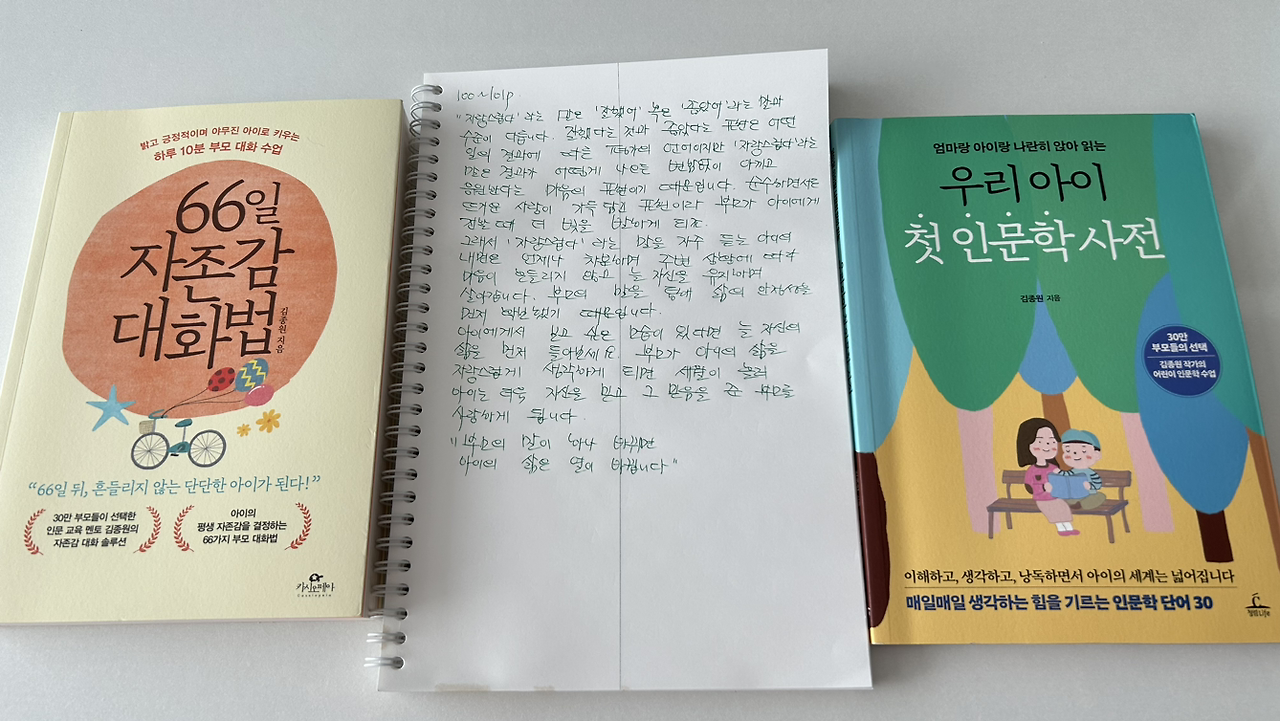 밝고 긍정적이며 야무진 아이로 키우는
하루 10분 부모 대화 수업
66일
자존감
대화법
김종원 지음
“66일 뒤, 흔들리지 않는 단단한 아이가 된다!”
30만 부모들이 선택한
인문 교육 멘토 김종원의
자존감 대화 솔루션
아이의
평생 자존감을 결정하는
66가지 부모 대화법
카시오페아
Cassiopeia
100~101p
"'자랑스럽다'라는 말은 '잘했어' 혹은 '좋았어'라는 말과
수준이 다릅니다. 잘했다는 것과 좋았다는 표현은 어떤
일의 결과에 따른 평가의 언어이지만 '자랑스럽다'라는
말은 결과가 어떻게 나오든 변함없이 아끼고
응원한다는 마음의 표현이기 때문입니다. 순수하면서도
뜨거운 사랑이 가득 담긴 표현이라 부모가 아이에게
전할 때 더 빛을 발하게 되죠.
그래서 '자랑스럽다'라는 말을 자주 듣는 아이의
내면은 언제나 차분하며 주변 상황에 따라
마음이 흔들리지 않고 늘 자신을 유지하며
살아갑니다. 부모의 말을 통해 삶의 안정성을
먼저 발견했기 때문입니다.
아이에게서 보고 싶은 모습이 있다면 늘 자신의
삶을 먼저 돌아보세요. 부모가 아이의 삶을
자랑스럽게 생각하게 되면 세월이 흘러
아이는 더욱 자신을 믿고 그 믿음을 준 부모를
사랑하게 됩니다.
"부모의 말이 하나 바뀌면
아이의 삶은 열이 바뀝니다"
엄마랑 아이랑 나란히 앉아 읽는
우리 아이
첫 인문학 사전
김종원 지음
30만
부모들의 선택
김종원 작가의
어린이 인문학 수업
이해하고, 생각하고, 낭독하면서 아이의 세계는 넓어집니다
매일매일 생각하는 힘을 기르는 인문학 단어 30
청림Life